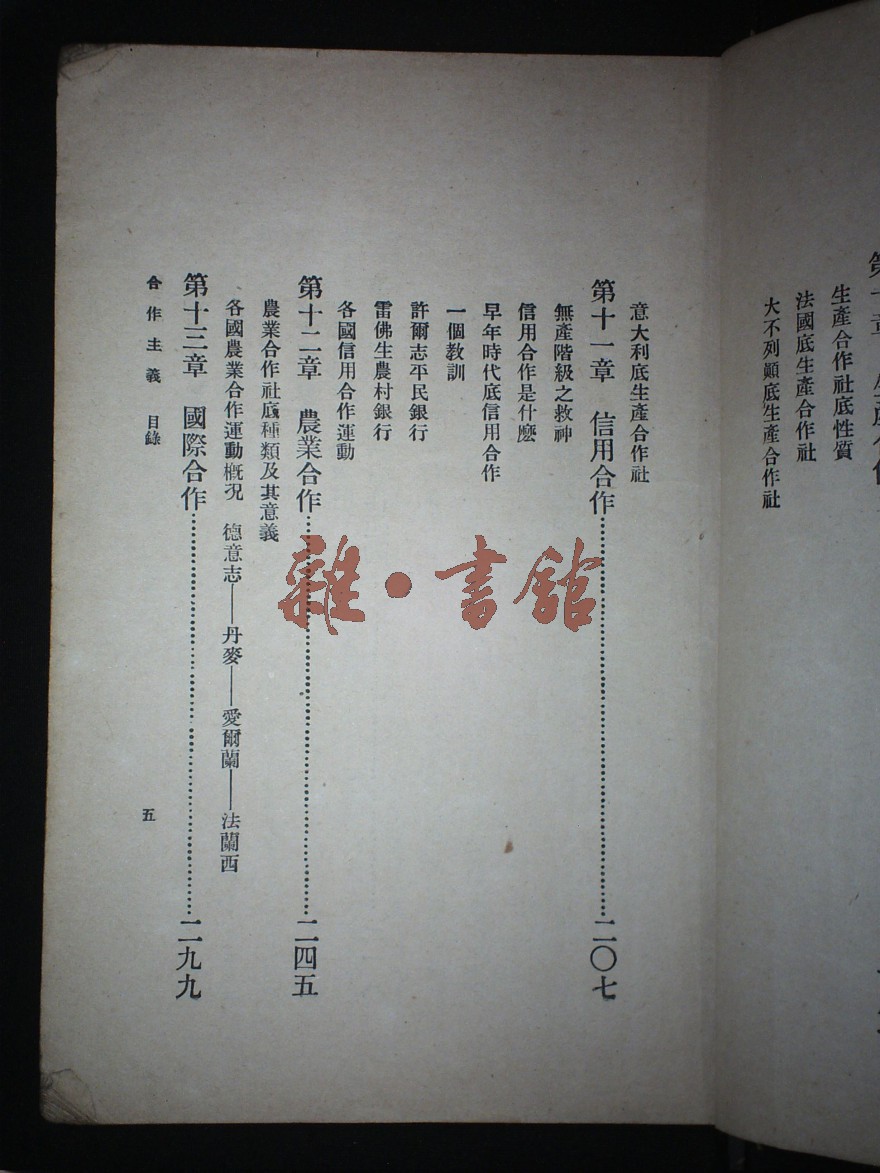 生產合作社底性質
法國底生產合作社
大不列顚底生產合作社
意大利底生產合作社
第十一章 信用合作……二〇七
無產階級之救神
信用合作是什麽
早年時代底信用合作
一個教訓
許爾志平民銀行
雷佛生農村銀行
各國信用合作運動
第十二章 農業合作……二四五
農業合作社底種類及其意義
各國農業合作運動槪況 德意志——丹麥——愛爾蘭——法蘭西
第十三章 國際合作……二九九
合作主義 目錄 五
雜·書館